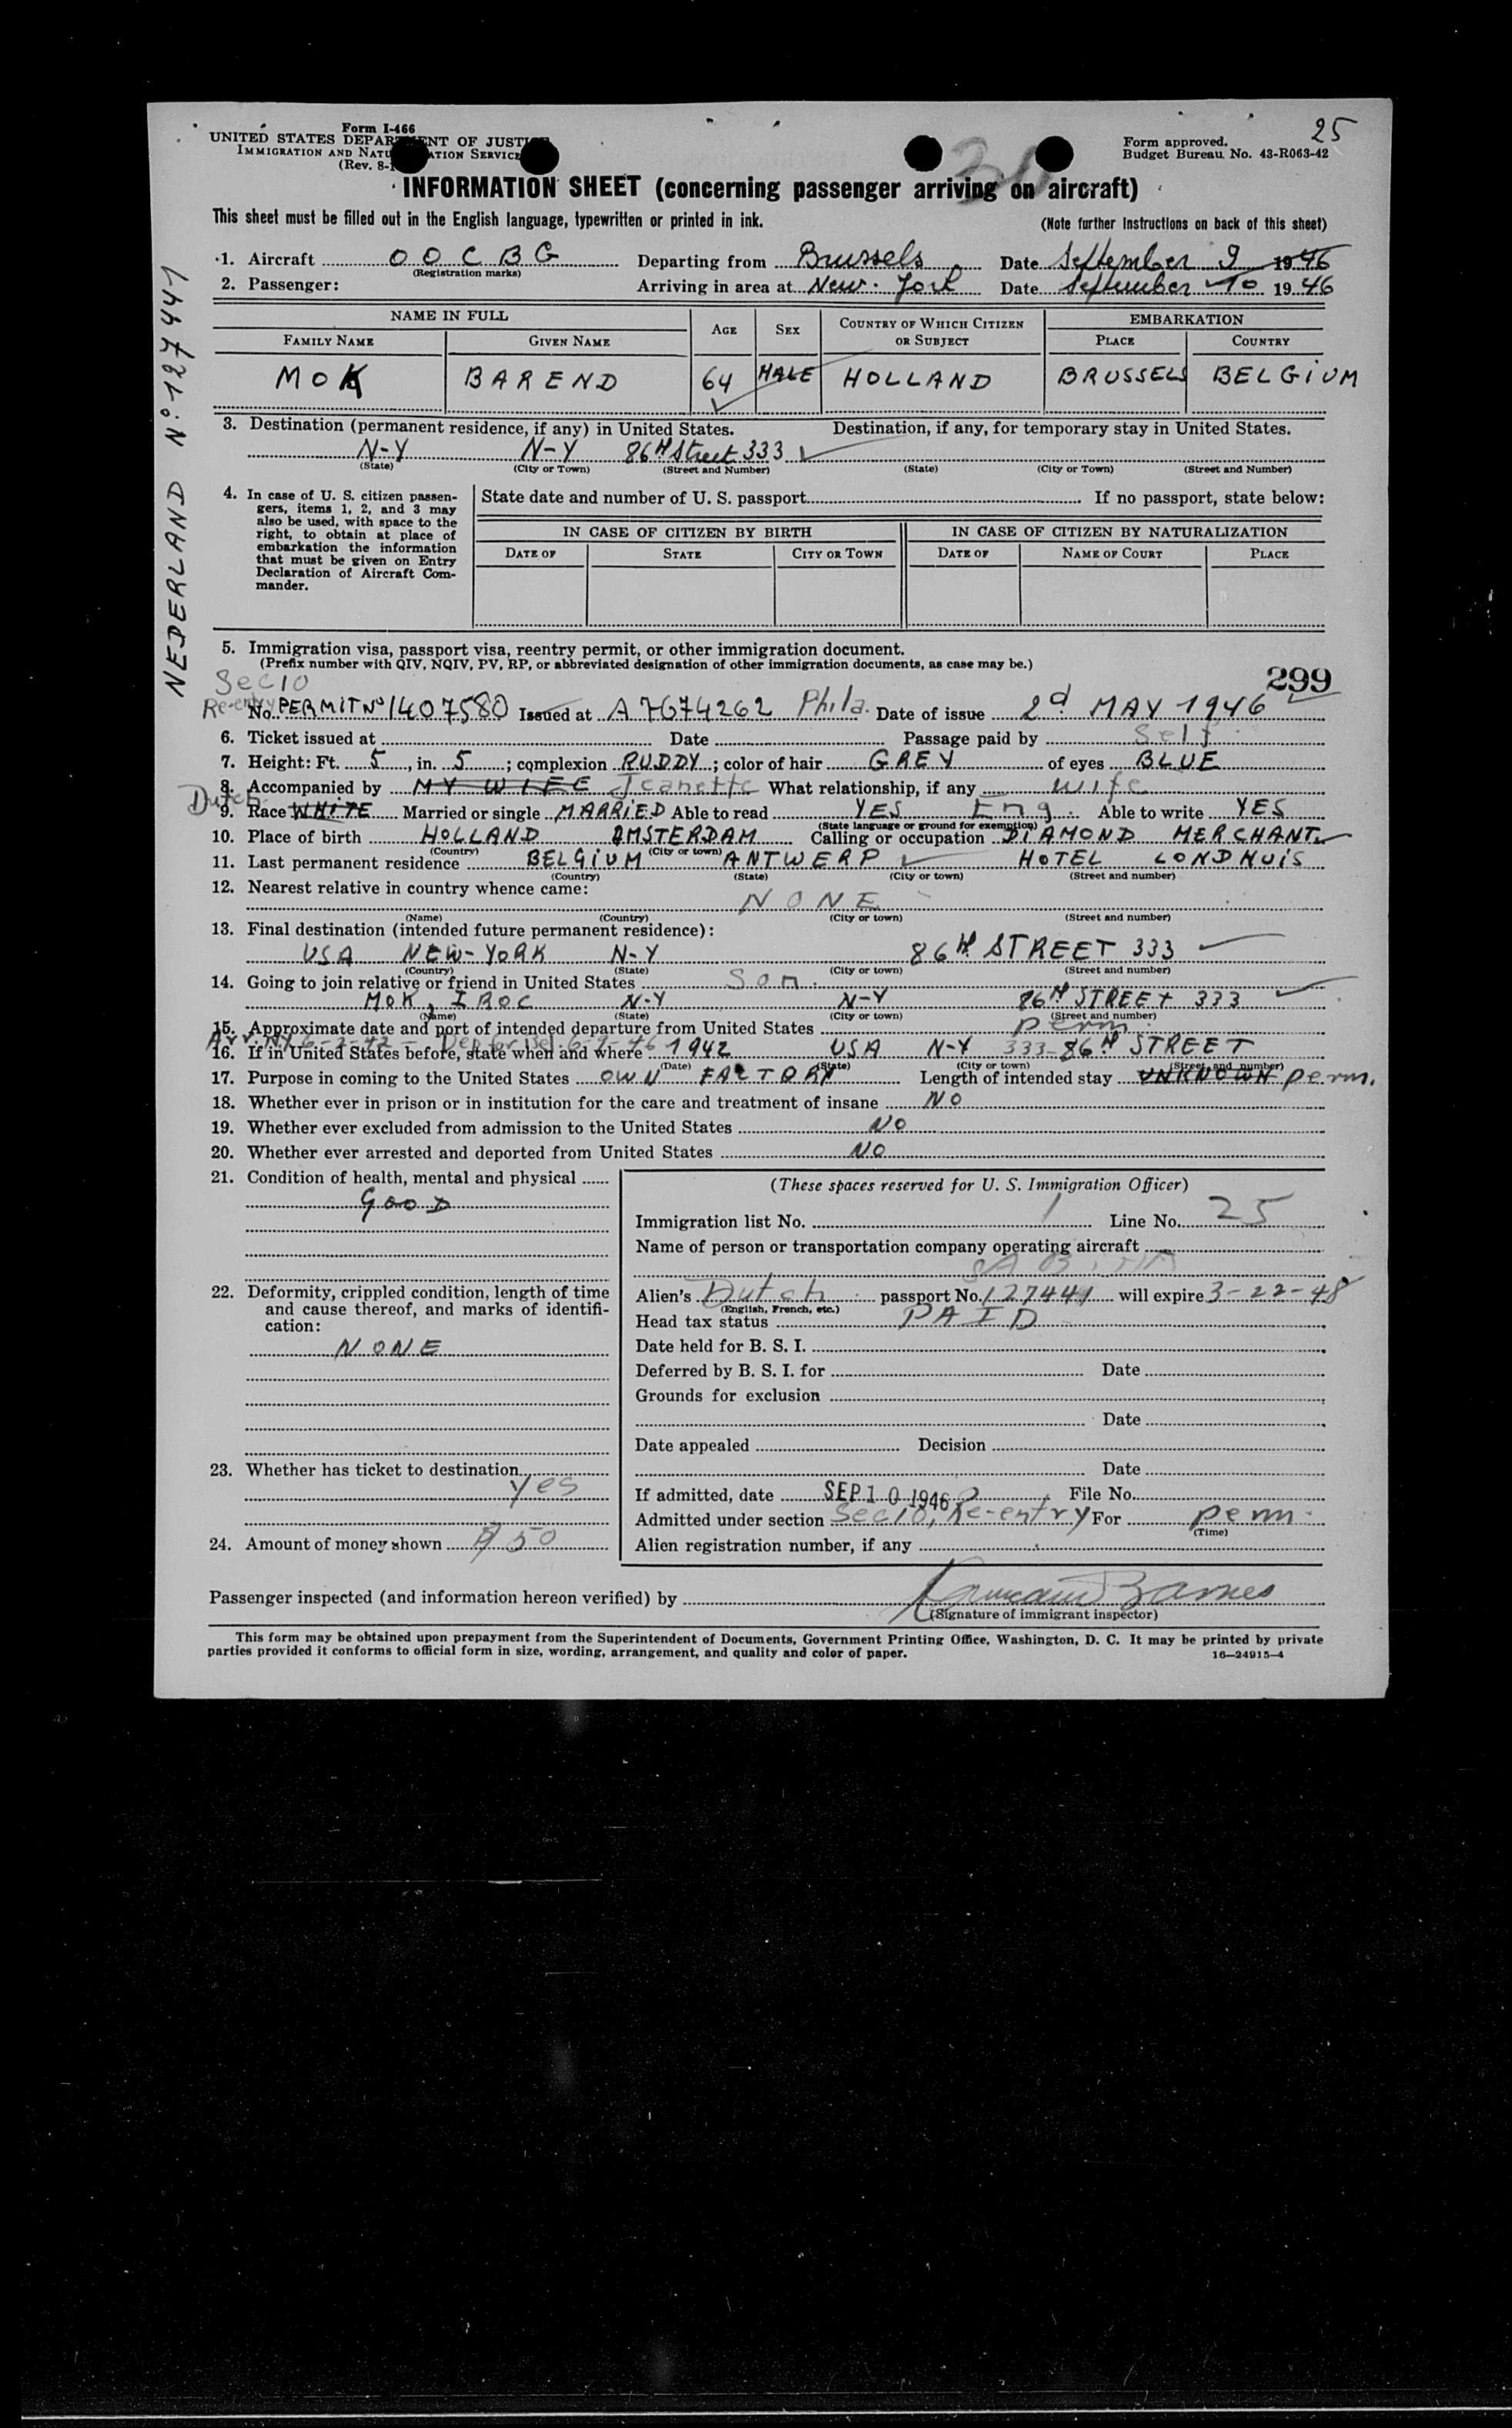 25
Form I-466
UNITED STATES DEPARTMENT OF JUSTICE
IMMIGRATION AND NATURALIZATION SERVICE
(Rev. 8-
Form approved.
Budget Bureau No. 43-R063-42
INFORMATION SHEET (concerning passenger arriving on aircraft)
This sheet must be filled out in the English language, typewritten or printed in ink. (Note further instructions on back of this sheet)
NEDERLAND No. 127441
1. Aircraft OOCBG Departing from Brussels Date September 9 1946
(Registration marks)
2. Passenger: Arriving in area at New-York Date September 10 1946
NAME IN FULL AGE SEX COUNTRY OF WHICH CITIZEN OR SUBJECT EMBARKATION
FAMILY NAME GIVEN NAME PLACE COUNTRY
MOK BAREND 64 MALE HOLLAND BRUSSELS BELGIUM
3. Destination (permanent residence, if any) in United States. Destination, if any, for temporary stay in United States.
N-Y N-Y 86TH Street 333
(State) (City or Town) (Street and Number) (State) (City or Town) (Street and Number)
4. In case of U. S. citizen passengers, items 1, 2, and 3 may also be used, with space to the right, to obtain at place of embarkation the information that must be given on Entry Declaration of Aircraft Commander.
State date and number of U. S. passport If no passport, state below:
IN CASE OF CITIZEN BY BIRTH IN CASE OF CITIZEN BY NATURALIZATION
DATE OF STATE CITY OR TOWN DATE OF NAME OF COURT PLACE
5. Immigration visa, passport visa, reentry permit, or other immigration document.
(Prefix number with QIV, NQIV, PV, RP, or abbreviated designation of other immigration documents, as case may be.)
299
Sec10
Re-entry No. PERMIT No 1407580 Issued at A7674262 Phila. Date of issue 2d MAY 1946
6. Ticket issued at Date Passage paid by Self
7. Height: Ft. 5, in. 5; complexion RUDDY; color of hair GREY of eyes BLUE
8. Accompanied by MY WIFE Jeanette What relationship, if any wife
Dutch
9. Race WHITE Married or single MARRIED Able to read YES Eng. Able to write YES
(State language or ground for exemption)
10. Place of birth HOLLAND AMSTERDAM Calling or occupation DIAMOND MERCHANT
(Country) (City or town)
11. Last permanent residence BELGIUM ANTWERP HOTEL LONDHUIS
(Country) (State) (City or town) (Street and number)
12. Nearest relative in country whence came:
NONE
(Name) (Country) (City or town) (Street and number)
13. Final destination (intended future permanent residence):
USA NEW-YORK N-Y 86TH STREET 333
(Country) (State) (City or town) (Street and number)
14. Going to join relative or friend in United States Son.
MOK, IROC N-Y N-Y 86TH STREET 333
(Name) (State) (City or town) (Street and number)
15. Approximate date and port of intended departure from United States perm.
Arr. NY 6-2-42 - Dep for Bel. 6-9-46
16. If in United States before, state when and where 1942 USA N-Y 333-86TH STREET
(Date) (State) (City or town) (Street and number)
17. Purpose in coming to the United States OWN FACTORY Length of intended stay UNKNOWN perm.
18. Whether ever in prison or in institution for the care and treatment of insane NO
19. Whether ever excluded from admission to the United States NO
20. Whether ever arrested and deported from United States NO
21. Condition of health, mental and physical
GOOD
22. Deformity, crippled condition, length of time and cause thereof, and marks of identification:
NONE
23. Whether has ticket to destination
Yes
24. Amount of money shown $50
(These spaces reserved for U. S. Immigration Officer)
Immigration list No. 1 Line No. 25
Name of person or transportation company operating aircraft
SABENA
Alien's Dutch passport No. 127441 will expire 3-22-48
(English, French, etc.)
Head tax status PAID
Date held for B. S. I.
Deferred by B. S. I. for Date
Grounds for exclusion
Date
Date appealed Decision
Date
If admitted, date SEP 10 1946 File No.
Admitted under section Sec10, Re-entry For perm.
(Time)
Alien registration number, if any
Passenger inspected (and information hereon verified) by Barnes
(Signature of immigrant inspector)
This form may be obtained upon prepayment from the Superintendent of Documents, Government Printing Office, Washington, D. C. It may be printed by private
parties provided it conforms to official form in size, wording, arrangement, and quality and color of paper. 16—24915-4